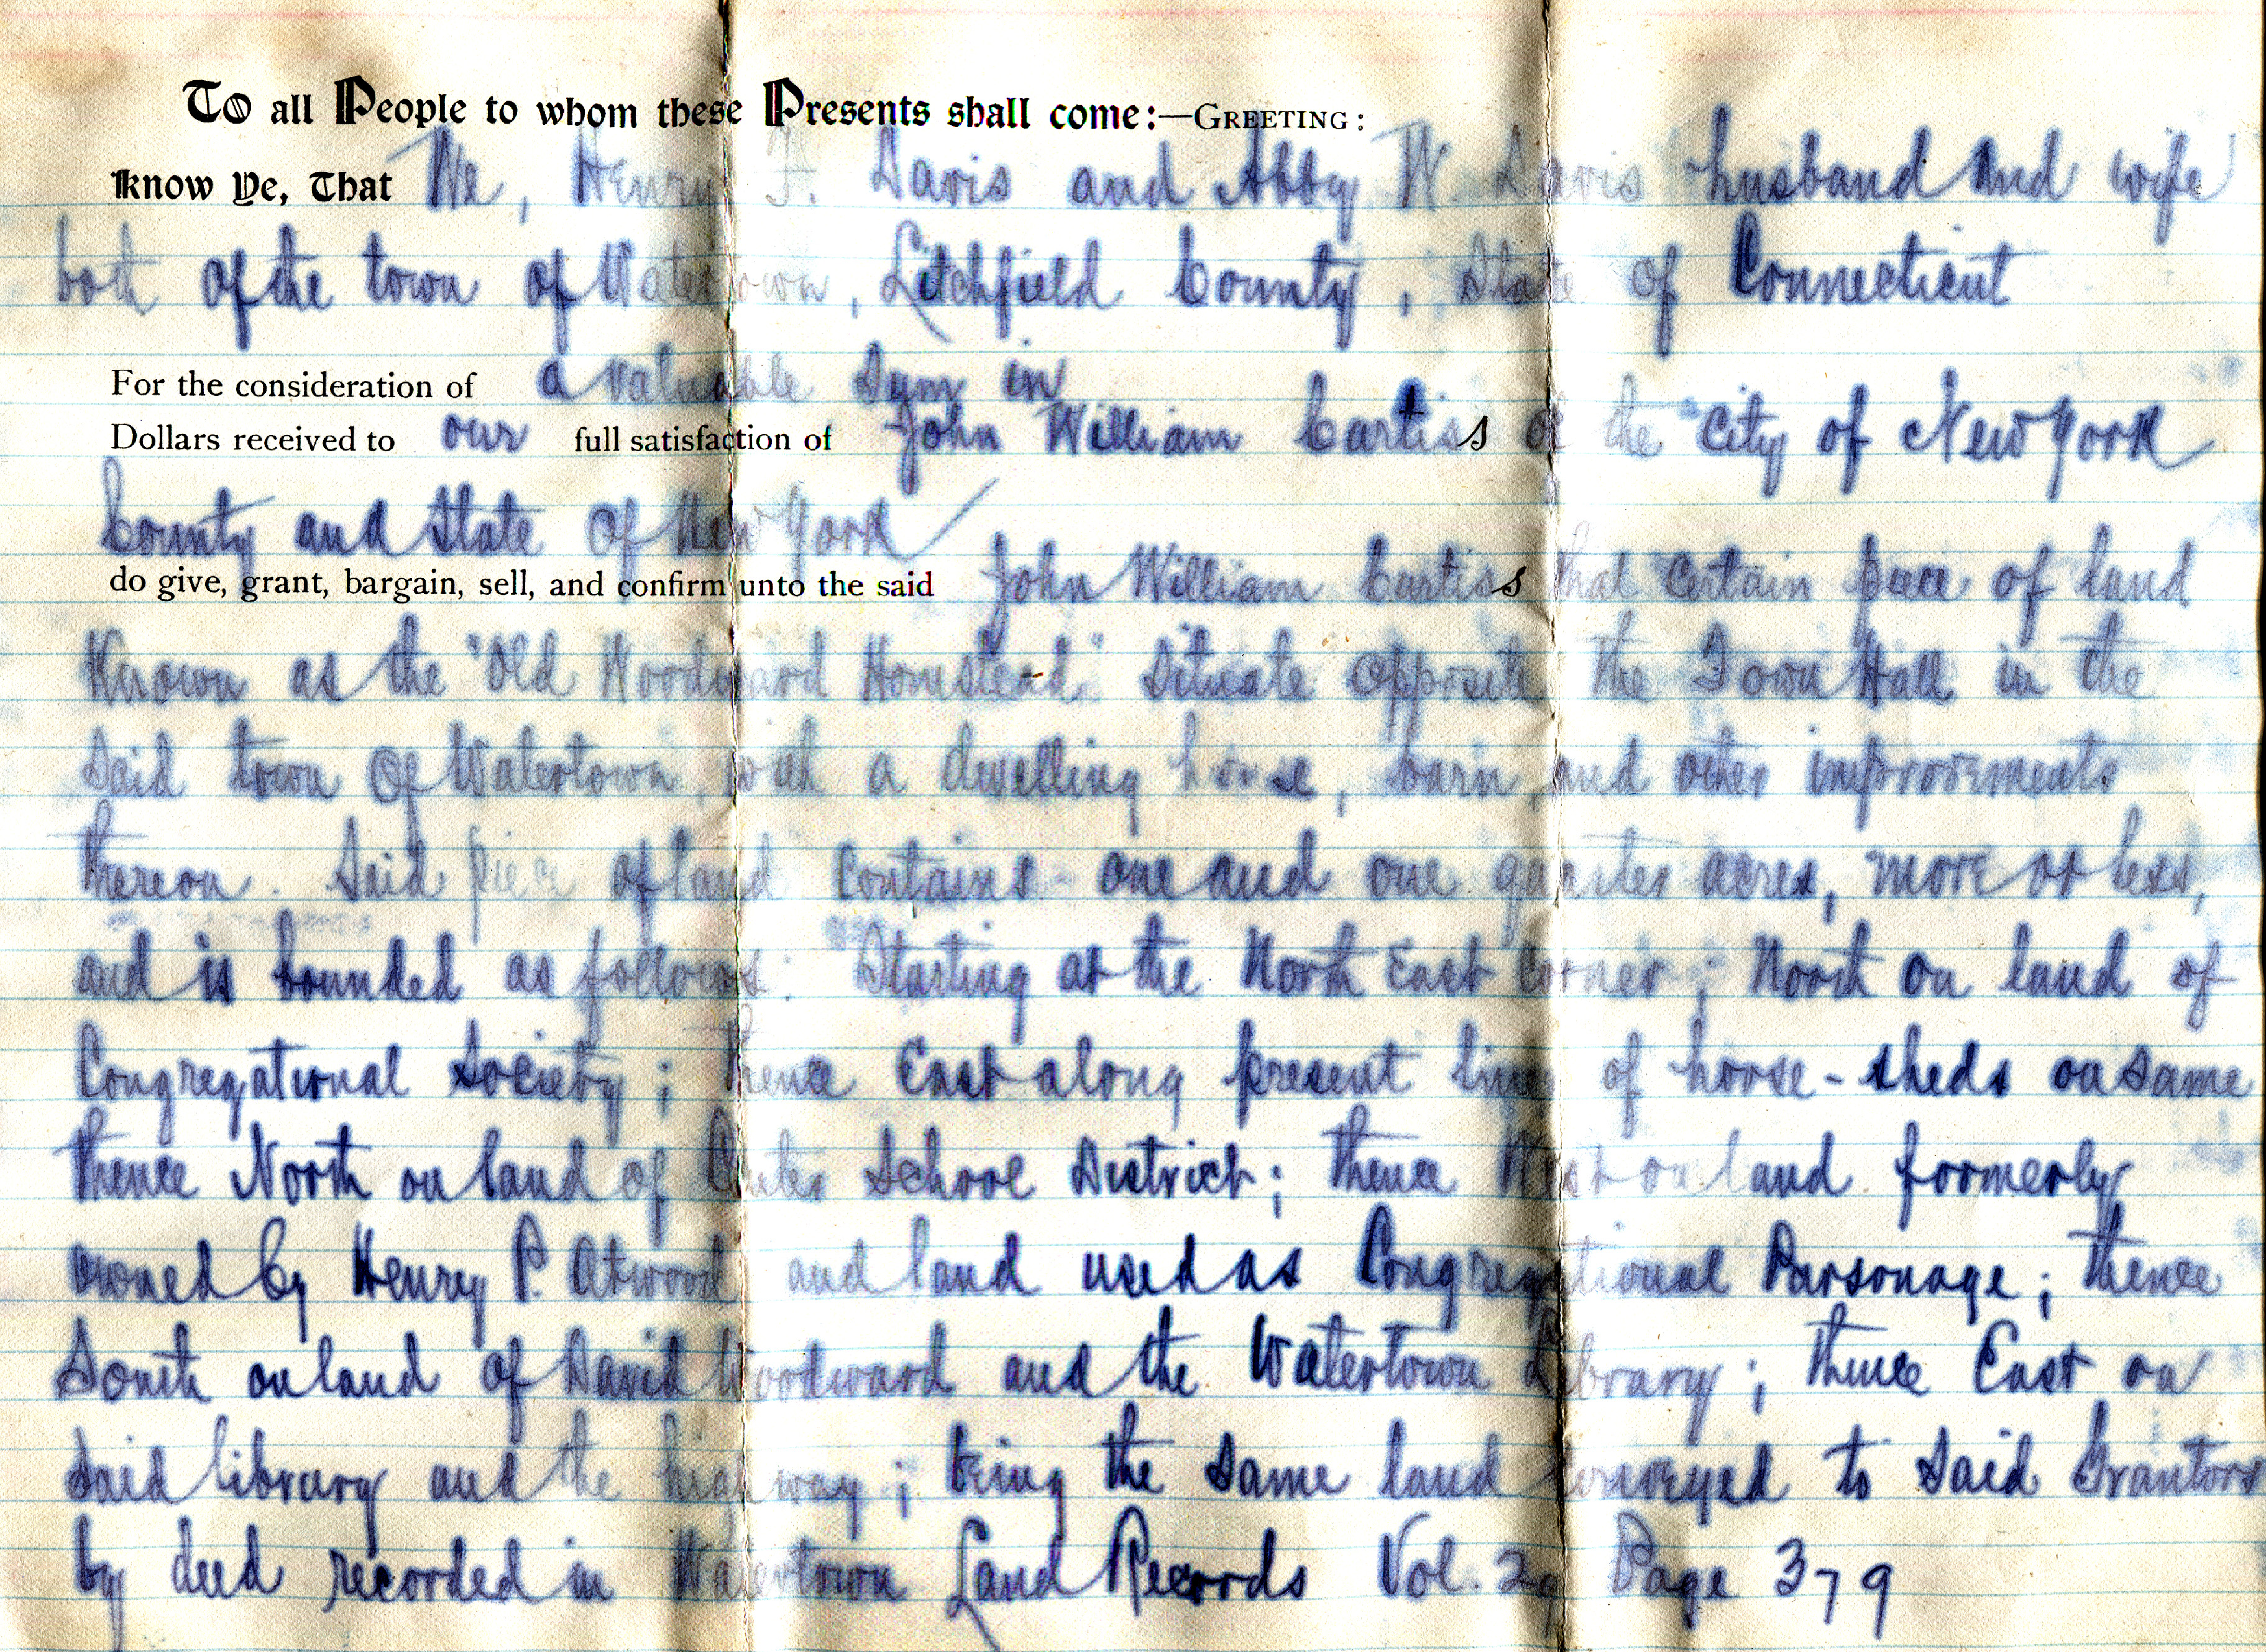 To all People to whom these Presents shall come:—GREETING:
Know Ye, That We, Henry F. Davis and Abby W. Davis husband and wife
both of the town of Watertown, Litchfield County, State of Connecticut
For the consideration of a valuable sum in
Dollars received to our full satisfaction of John William Curtiss of the City of New York
County and State of New York
do give, grant, bargain, sell, and confirm unto the said John William Curtiss that certain piece of land
Known as the "Old Woodward Homstead" Situate opposite the Town Hall in the
said town of Watertown, with a dwelling house, barn, and other improvements
thereon. Said piece of land contains one and one quarter acres, more or less,
and is bounded as follows: Starting at the North East Corner; North on land of
Congregational Society; thence East along present line of horse-sheds on same
thence North on land of Center School District; thence West on land formerly
owned by Henry P. Atwood and land used as Congregational Parsonage; thence
South on land of David Woodward and the Watertown Library; thence East on
said library and the highway; being the same land conveyed to said Grantors
by deed recorded in Watertown Land Records Vol. 29 Page 379